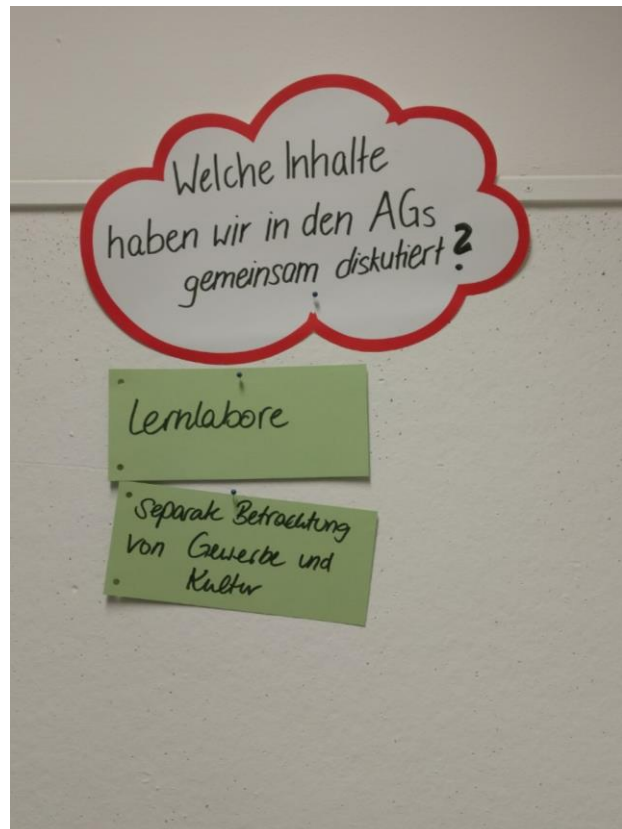 Welche Inhalte
haben wir in den AGs
gemeinsam diskutiert?
Lernlabore
Separate Betrachtung
von Gewerbe und
Kultur